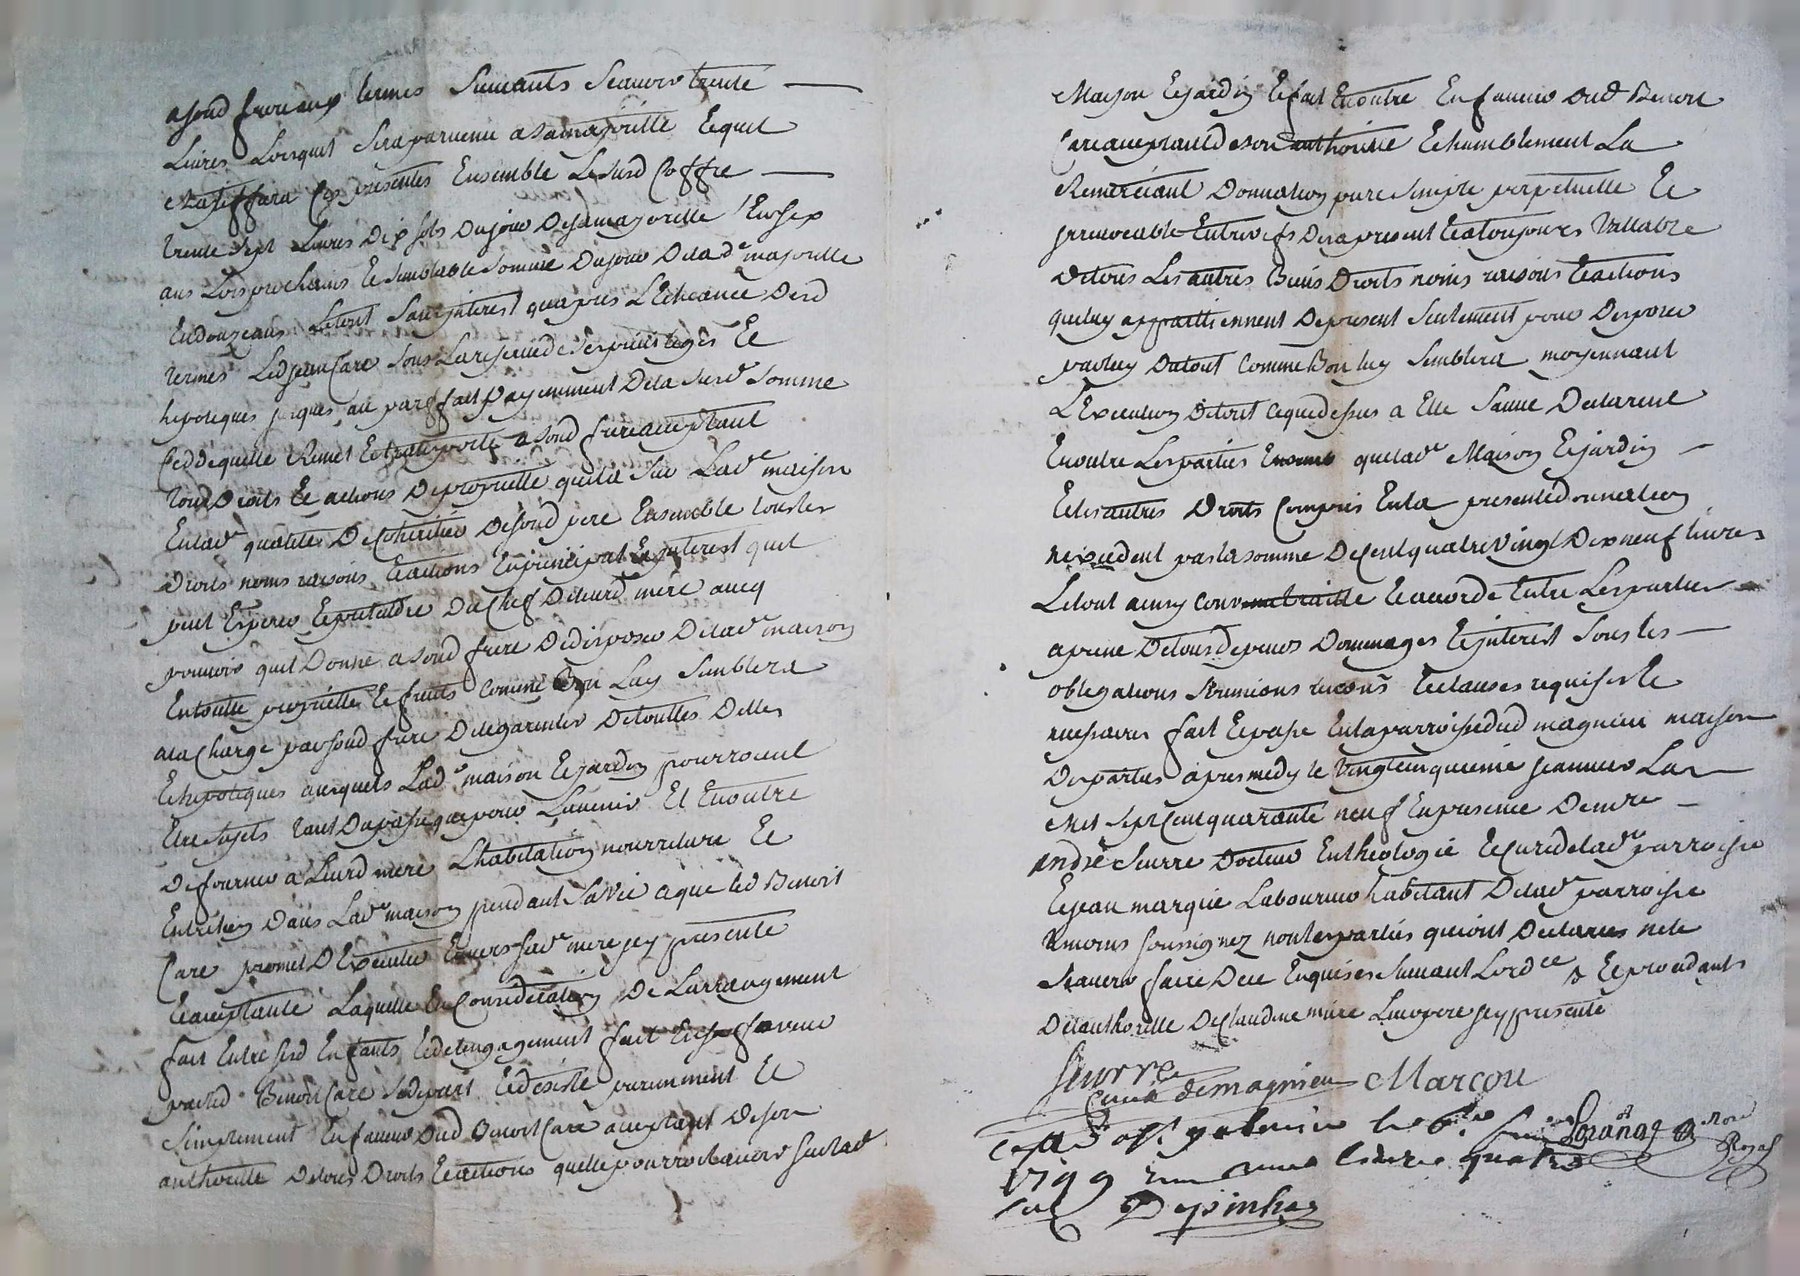 asond frere aux termes suivants scauoir trente
Liures Lorsquil sera paruenu a sa majoritte Lequel
Ces presentes Ensemble Le susd Coffre
trente sept Liures dix sols du jour de sa majoritte En six
ans Lors prochains Et semblable somme du jour de lad.e majoritte
En douze ans Le tout sans jnterest qu'apres L'Echeance desd
termes Led jean Care sous La reserue de ses priuileges Et
hipoteques jusques au parffait payemment de la susd.e somme
remet Et transporte a sond frere acceptant
tous droits Et actions de proprietté quil a sur Lad.e maison
En lad.e qualité de Coheritier de sond pere Ensemble tous les
droits noms raisons Et actions En principal Et jnterest quil
peut Esperer Et pretendre du Chef de leurd mere auec
pouuoir quil donne a sond frere de disposer de lad.e maison
En toutte proprietté Et fruits Comme Bon Luy semblera
a la Charge par sond frere de le garentir de touttes dettes
Et hipoteques auxquels Lad.e maison Et jardin pourroient
Etre sujets tant du passé que pour L'auenir Et En outre
de fournir a Leurd mere L'habitation nourriture Et
Entretien dans Lad.e maison pendant sa vie a que led Benoit
Care promet d'Executer Enuers sad.e mere jcy presente
Et acceptante Laquelle En Consideration de L'arrangement
fait Entre sesd Enfants Et de l'engagement fait En sa faueur
par led Benoit Care se depart Et desiste puremment Et
simplement En faueur dud Benoit Care acceptant de son
authoritté de tous droits Et actions quelle pourroit auoir sur lad.e
Maison Et jardin Et fait En outre En faueur dud Benoit
Care acceptant de son authoritté Et humblement La
Remerciant donnation pure simple perpetuelle Et
jrreuocable Entre vifs des a present Et a toujours Vallable
de tous Les autres Biens droits noms raisons Et actions
qui luy appartiennent de present seulement pour disposer
par luy du tout Comme Bon luy semblera moyennant
L'Execution de tout ce que dessus a Elle sauue declarent
En outre Les parties que lad.e Maison Et jardin
Et les autres droits Compris En la presente donnation
n'excedent pas la somme de Cent quatre Vingt dix neuf liures
Le tout ainsy conuenu Et accordé Entre Les parties
a peine de tous depens dommages Et jnterest sous les
obligations soumissions Et clauses requises Et
necessaires fait Et passé En la parroisse dud magnieu maison
des parties apres medy le Vingt cinquieme jeanuier L'an
Mil sept Cent quarante neuf En presence de m.re
André Seurre docteur En theologie Et Curé de lad.e parroisse
Et jean marquie Laboureur habitant de lad.e parroisse
temoins soussignez non les parties qui ont declaré ne le
scauoir faire de ce Enquises suiuant L'ord.ce
de l'authoritté de Claudine mere Leur pere jcy presente
Seurre
Curé de magnieu Marcou
1749
Depinhac